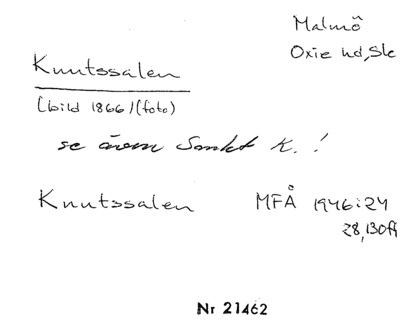 Malmö
Oxie hd, Sk
Knutssalen
(bild 1866) (foto)
se även Sankt K.!
Knutssalen MFÅ 1946:24
28, 130ff
Nr 21462